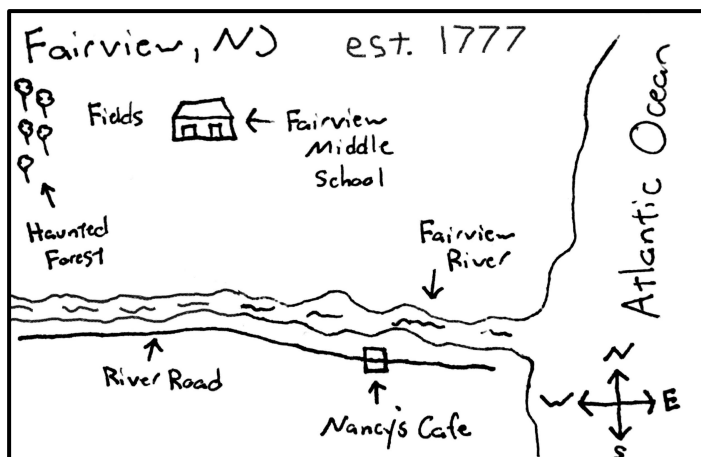 Fairview, NJ est. 1777
Fields
Fairview
Middle
School
Haunted
Forest
Fairview
River
Atlantic Ocean
River Road
Nancy's Cafe
N
W E
S